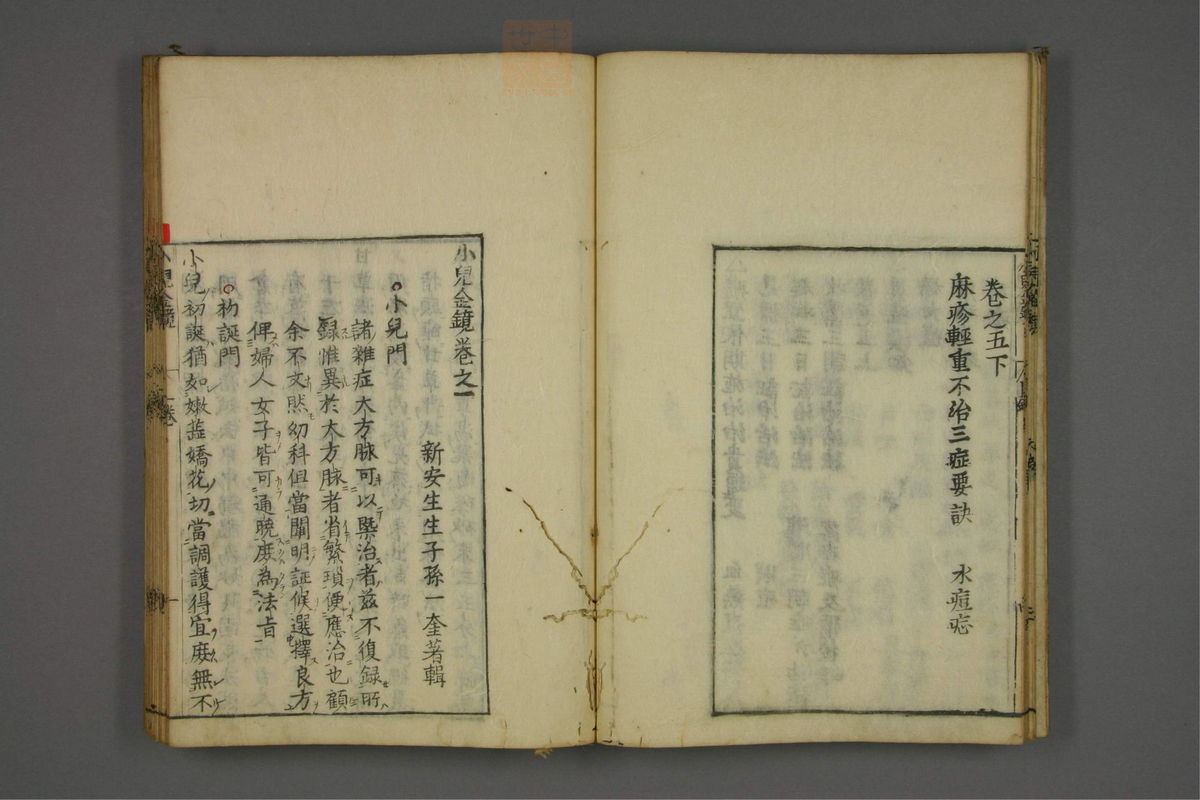 卷之五下
麻疹輕重不治三症要訣　水痘痣
小兒金鏡卷之一
新安生生子孫一奎著輯
○小兒門
諸雜症大方脉可以槩治者兹不復録所
録惟異於大方脉者省繁瑣便應治也顧
余不文然幼科但當闡明証候選擇良方
俾婦人女子皆可通曉庻為法旨
○初誕門
小兒初誕猶如嫩蕋嬌花切當調護得宜庻無不
小兒金鏡
卷